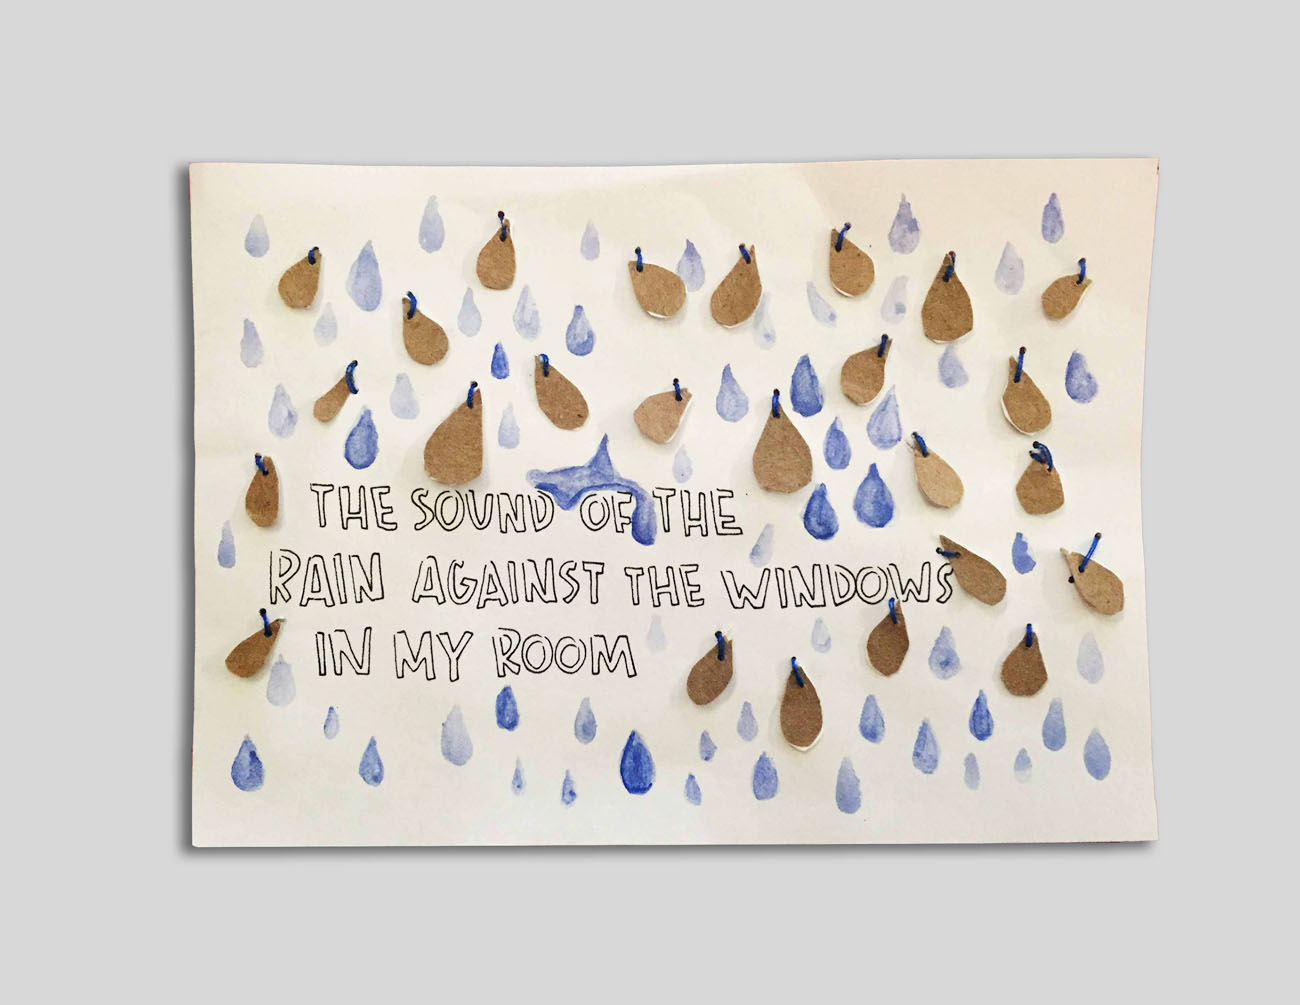 THE SOUND OF THE
RAIN AGAINST THE WINDOWS
IN MY ROOM